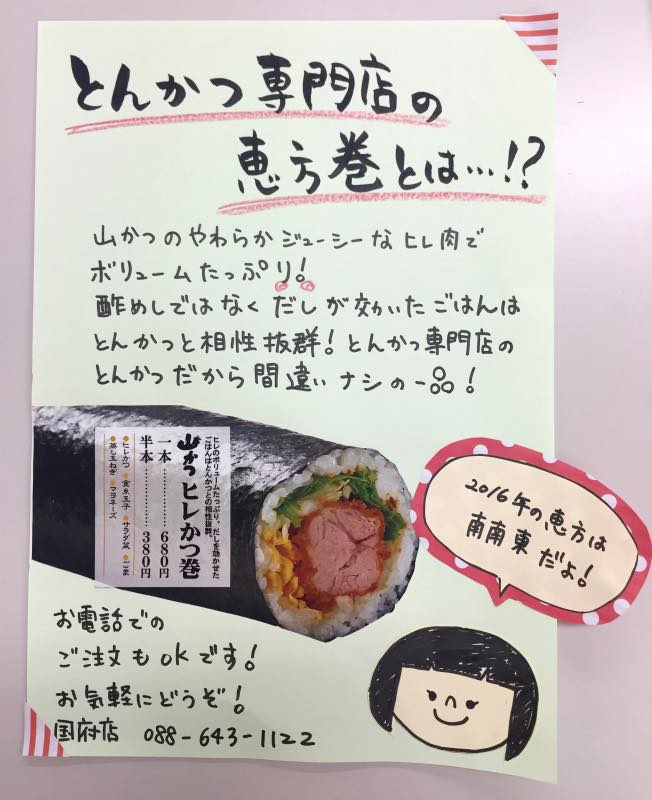 とんかつ専門店の
恵方巻とは…!?
山かつのやわらかジューシーなヒレ肉で
ボリュームたっぷり!
酢めしではなくだしが効いたごはんは
とんかつと相性抜群!とんかつ専門店の
とんかつだから間違いナシの一品!
ヒレのボリュームたっぷり。だしを効かせた
ごはんはとんかつとの相性抜群。
山かつヒレかつ巻
一本…………680円
半本…………380円
●ヒレかつ ●金糸玉子 ●サラダ菜 ●ごま
●蒸し玉ねぎ ●マヨネーズ
2016年の恵方は
南南東だよ!
お電話での
ご注文もOKです!
お気軽にどうぞ!
国府店 088-643-1122